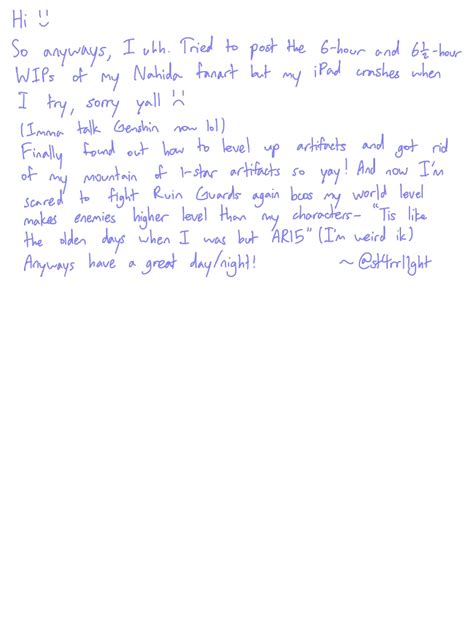 Hi :)
So anyways, I uhh. Tried to post the 6-hour and 6½-hour
WIPs of my Nahida fanart but my iPad crashes when
I try, sorry yall :(
(Imma talk Genshin now lol)
Finally found out how to level up artifacts and got rid
of my mountain of 1-star artifacts so yay! And now I'm
scared to fight Ruin Guards again bcos my world level
makes enemies higher level than my characters- "Tis like
the olden days when I was but AR15" (I'm weird ik)
Anyways have a great day/night! ~ @st4rrl1ght